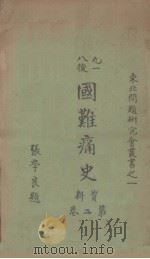 東北問題研究會叢書之一
九一八後
國難痛史
資料
第二卷
張學良題